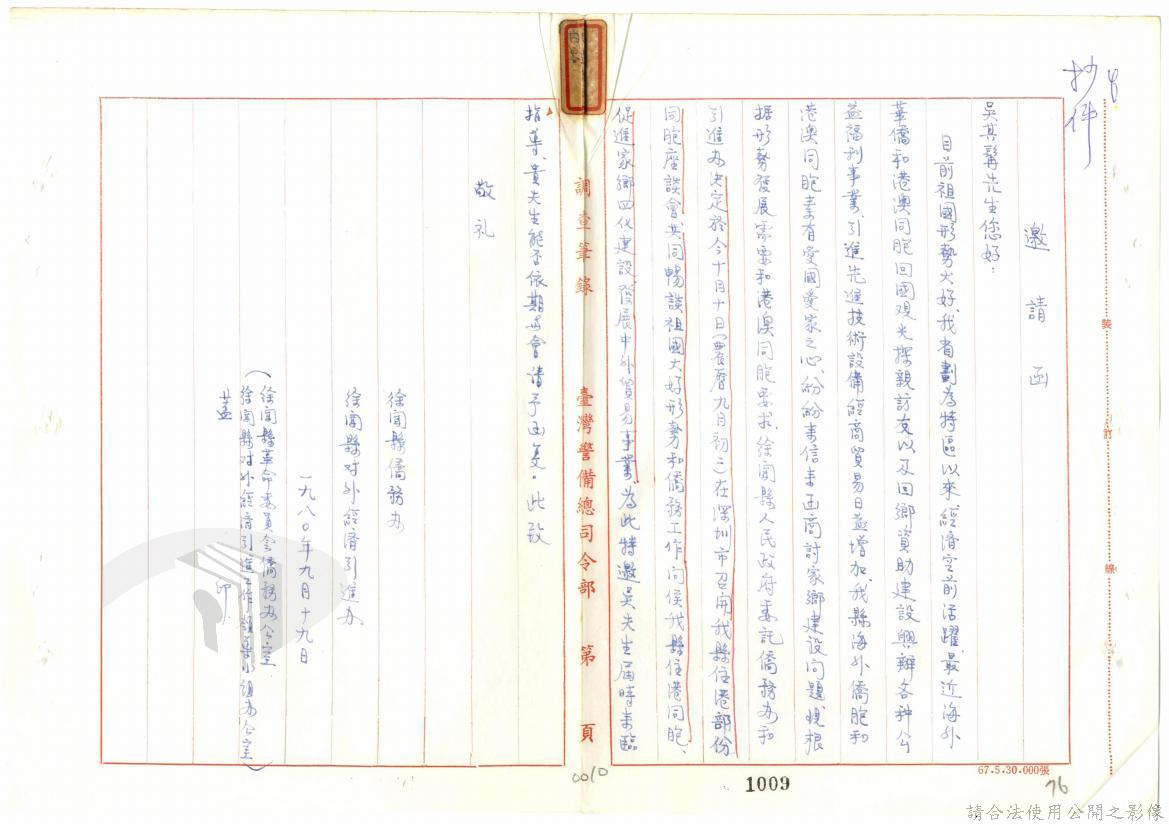 抄件
邀請函
吳其髯先生您好：
目前祖國形勢大好、我省劃為特區以來經濟空前活躍、最近海外
華僑和港澳同胞回國观光探親訪友以及回鄉資助建設興辦各种公
益福利事業、引進先進技術設備經商貿易日益增加、我縣海外僑胞和
港澳同胞素有愛國愛家之心、紛紛来信来函商討家鄉建設问題、現根
据形勢發展需要和港澳同胞要求、徐聞縣人民政府委託僑務办和
引進办决定於今十月十日（農曆九月初二）在深圳市召開我縣住港部份
同胞座談會、共同暢談祖國大好形勢和僑務工作向侯我縣住港同胞、
促進家鄉四化建設發展中外貿易事業、為此特邀吳先生届時来臨
指导、貴先生能否依期与會请予函复。此致
敬礼
徐聞縣僑務办
徐聞縣对外經濟引進办
一九八〇年九月十九日
（徐聞縣革命委員会僑務办公室
徐聞縣对外經濟引進工作領导小組办公室）
蓋 印
調查筆錄 臺灣警備總司令部 第 頁
裝 訂 線
67.5.30.000張
0010
1009
76
請合法使用公開之影像